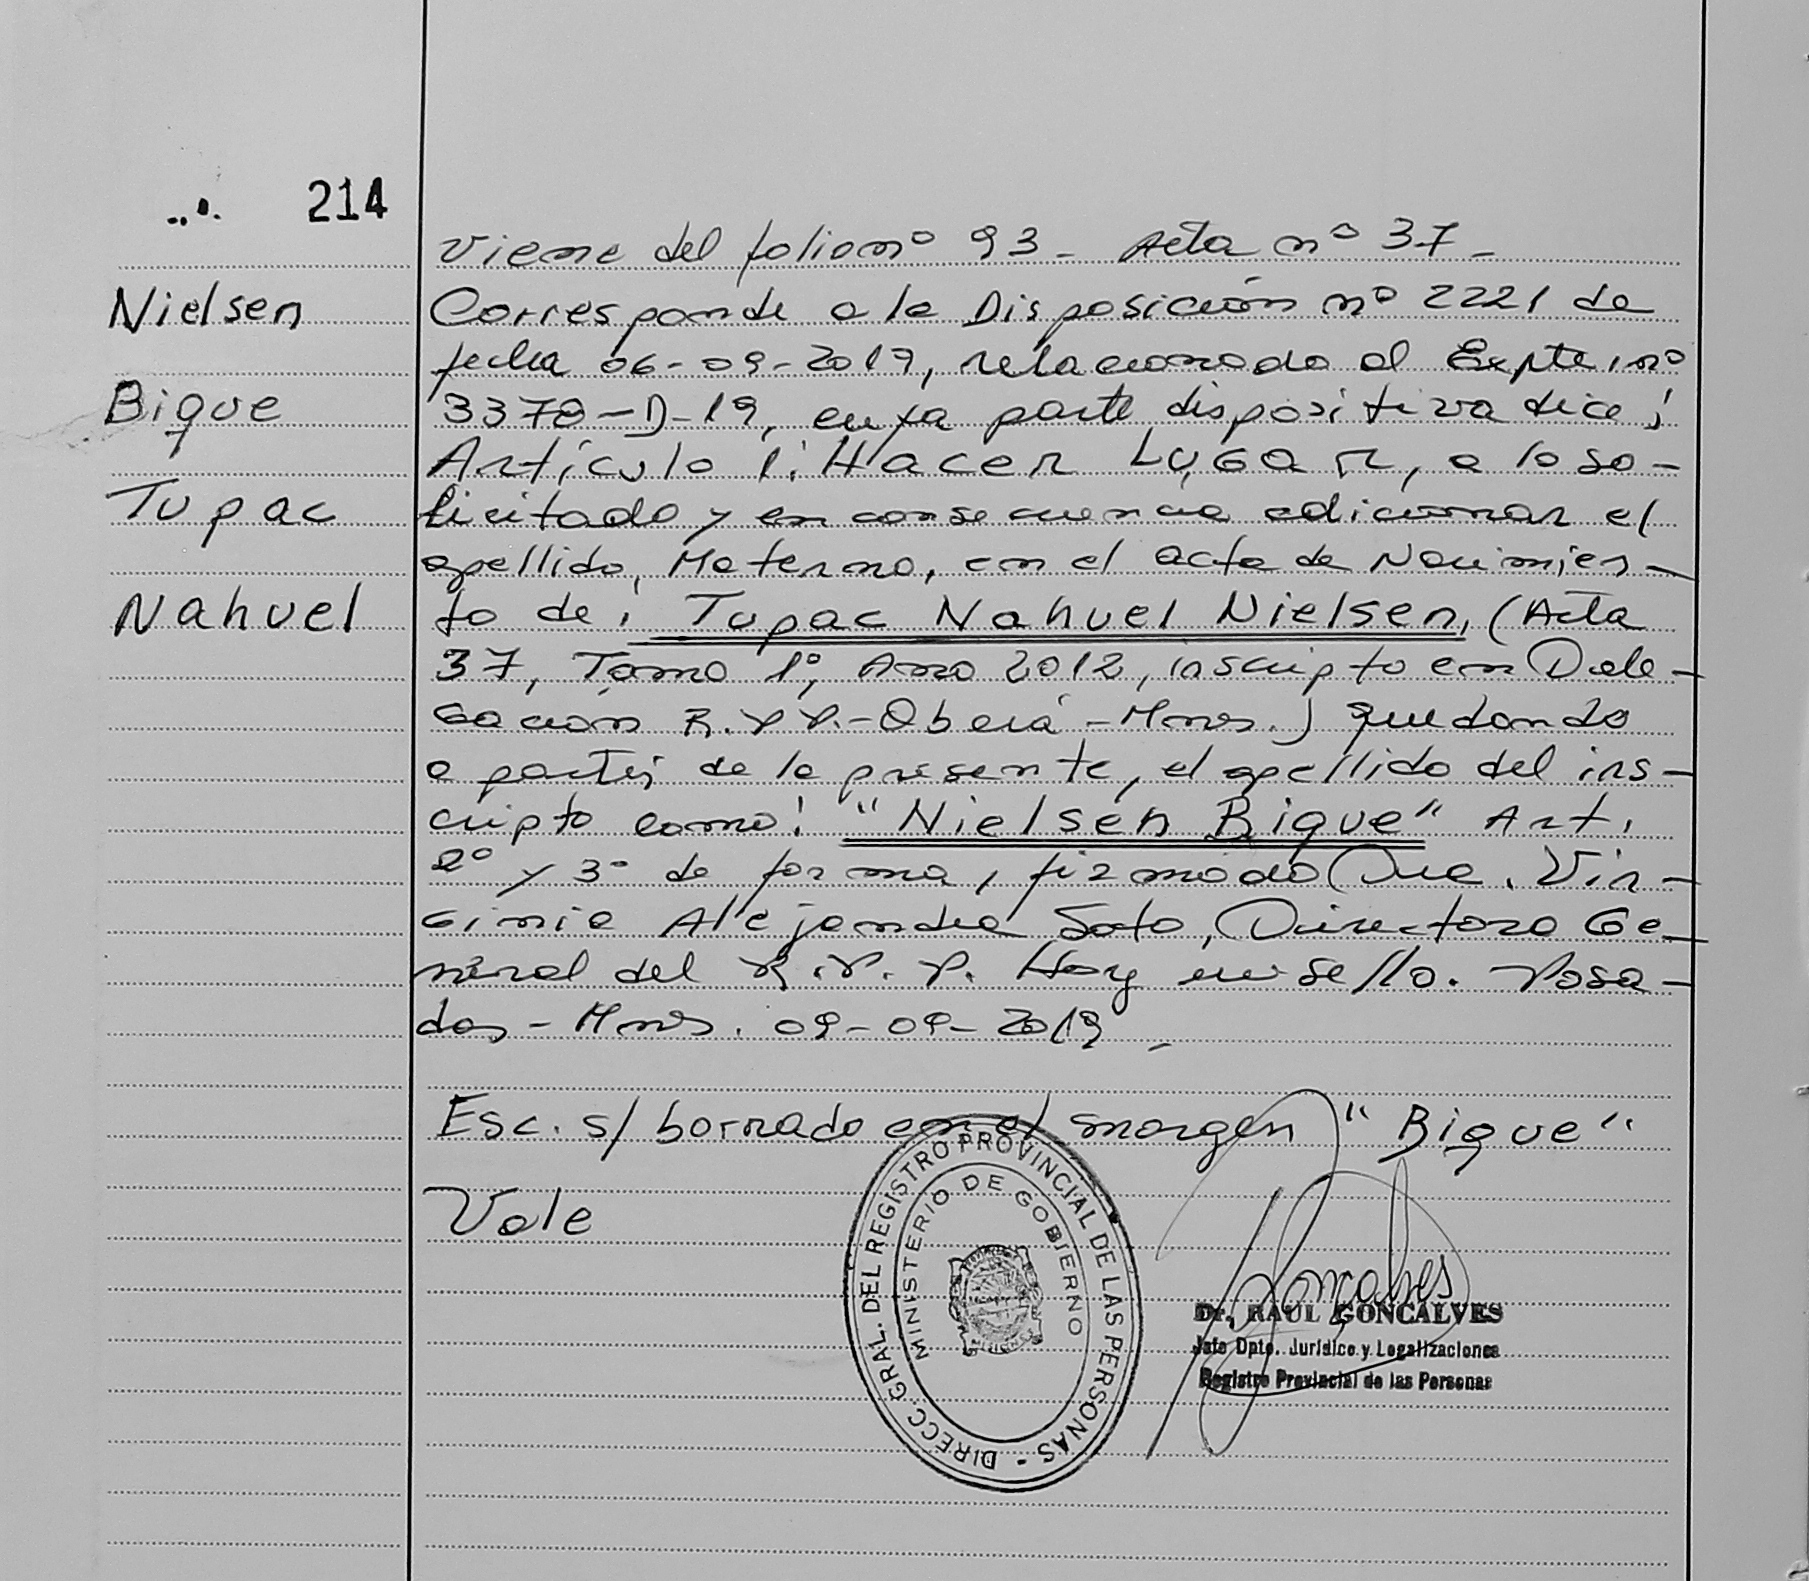 214
Nielsen
Bique
Tupac
Nahuel
Viene del folio nº 93 - Acta nº 37 -
Corresponde a la Disposición nº 2221 de
fecha 06-09-2019, relacionado al Expte. nº
3378-D-19, cuya parte dispositiva dice:
Artículo 1: Hacer LUGAR, a lo so-
licitado y en consecuencia adicionar el
apellido, Materno, en el acta de Nacimien-
to de: Tupac Nahuel Nielsen, (Acta
37, Tomo 1º, Año 2012, inscripto en Dele-
gación R.P.P.-Oberá-Mnes.) quedando
a partir de la presente, el apellido del ins-
cripto como: "Nielsen Bique" Art.
2º y 3º de forma, firmado Dra. Vir-
ginia Alejandra Soto, Directora Ge-
neral del R.P.P. Hay un sello. Posa-
das - Mnes. 09-09-2019 -
Esc. s/ borrado en el margen "Bique"
Vale
DIRECC. GRAL. DEL REGISTRO PROVINCIAL DE LAS PERSONAS -
MINISTERIO DE GOBIERNO
Goncalves
Dr. RAUL GONCALVES
Jefe Dpto. Jurídico y Legalizaciones
Registro Provincial de las Personas